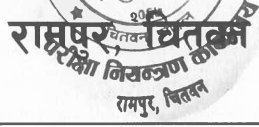 रामपुर, चितवन
परीक्षा नियन्त्रण कार्यालय
रामपुर, चितवन